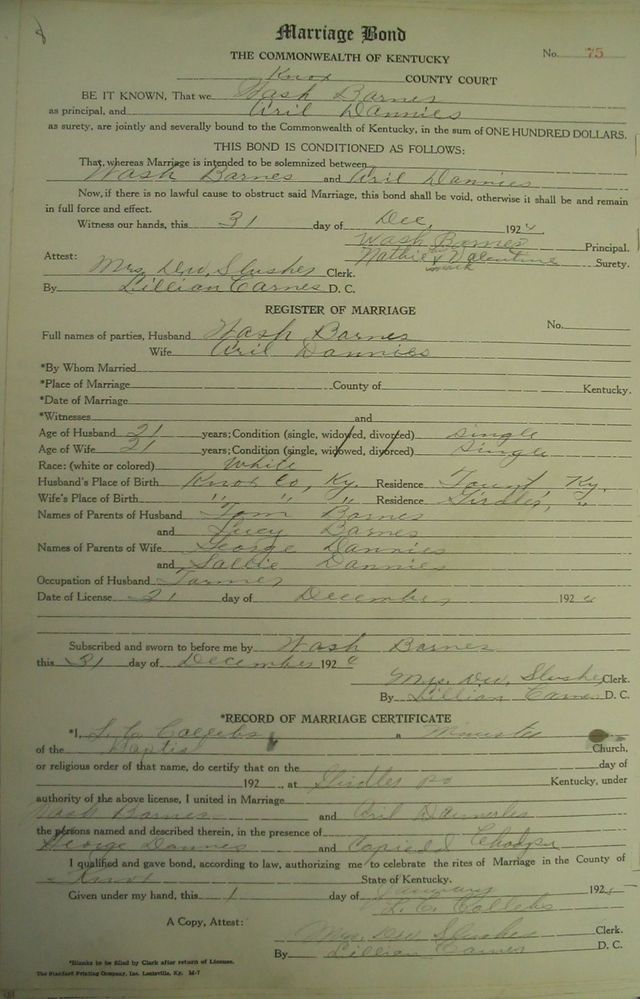 Marriage Bond
THE COMMONWEALTH OF KENTUCKY
No. 75
Knox COUNTY COURT
BE IT KNOWN, That we Wash Barnes
as principal, and Aril Dannies
as surety, are jointly and severally bound to the Commonwealth of Kentucky, in the sum of ONE HUNDRED DOLLARS.
THIS BOND IS CONDITIONED AS FOLLOWS:
That, whereas Marriage is intended to be solemnized between
Wash Barnes and Aril Dannies
Now, if there is no lawful cause to obstruct said Marriage, this bond shall be void, otherwise it shall be and remain
in full force and effect.
Witness our hands, this 31 day of Dec, 192
Wash Barnes Principal.
Valentine Surety.
mark
Attest:
Mrs. DW. Slusher Clerk.
By Lillian Carnes D. C.
REGISTER OF MARRIAGE
No.
Full names of parties, Husband Wash Barnes
Wife Aril Dannies
*By Whom Married
*Place of Marriage County of Kentucky.
*Date of Marriage
*Witnesses and
Age of Husband 21 years; Condition (single, widowed, divorced) single
Age of Wife 21 years; Condition (single, widowed, divorced) Single
Race: (white or colored) White
Husband's Place of Birth Knox Co, Ky. Residence Ky.
Wife's Place of Birth " " " Residence Girdler, "
Names of Parents of Husband Tom Barnes
and Lucy Barnes
Names of Parents of Wife George Dannies
and Sallie Dannies
Occupation of Husband Farmer
Date of License 31 day of December 192
Subscribed and sworn to before me by Wash Barnes
this 31 day of December 192
Mrs. DW. Slusher Clerk.
By Lillian Carnes D. C.
*RECORD OF MARRIAGE CERTIFICATE
*I, L. C. a Minister
of the Baptist Church,
or religious order of that name, do certify that on the day of
192 , at Girdler po Kentucky, under
authority of the above license, I united in Marriage
Wash Barnes and Aril
the persons named and described therein, in the presence of
George Dannes and
I qualified and gave bond, according to law, authorizing me to celebrate the rites of Marriage in the County of
Knox State of Kentucky.
Given under my hand, this 1 day of January 192
L. C.
A Copy, Attest:
Mrs. DW Slusher Clerk.
By Lillian Carnes D. C.
*Blanks to be filled by Clerk after return of License.
The Standard Printing Company, Inc. Louisville, Ky. M-7